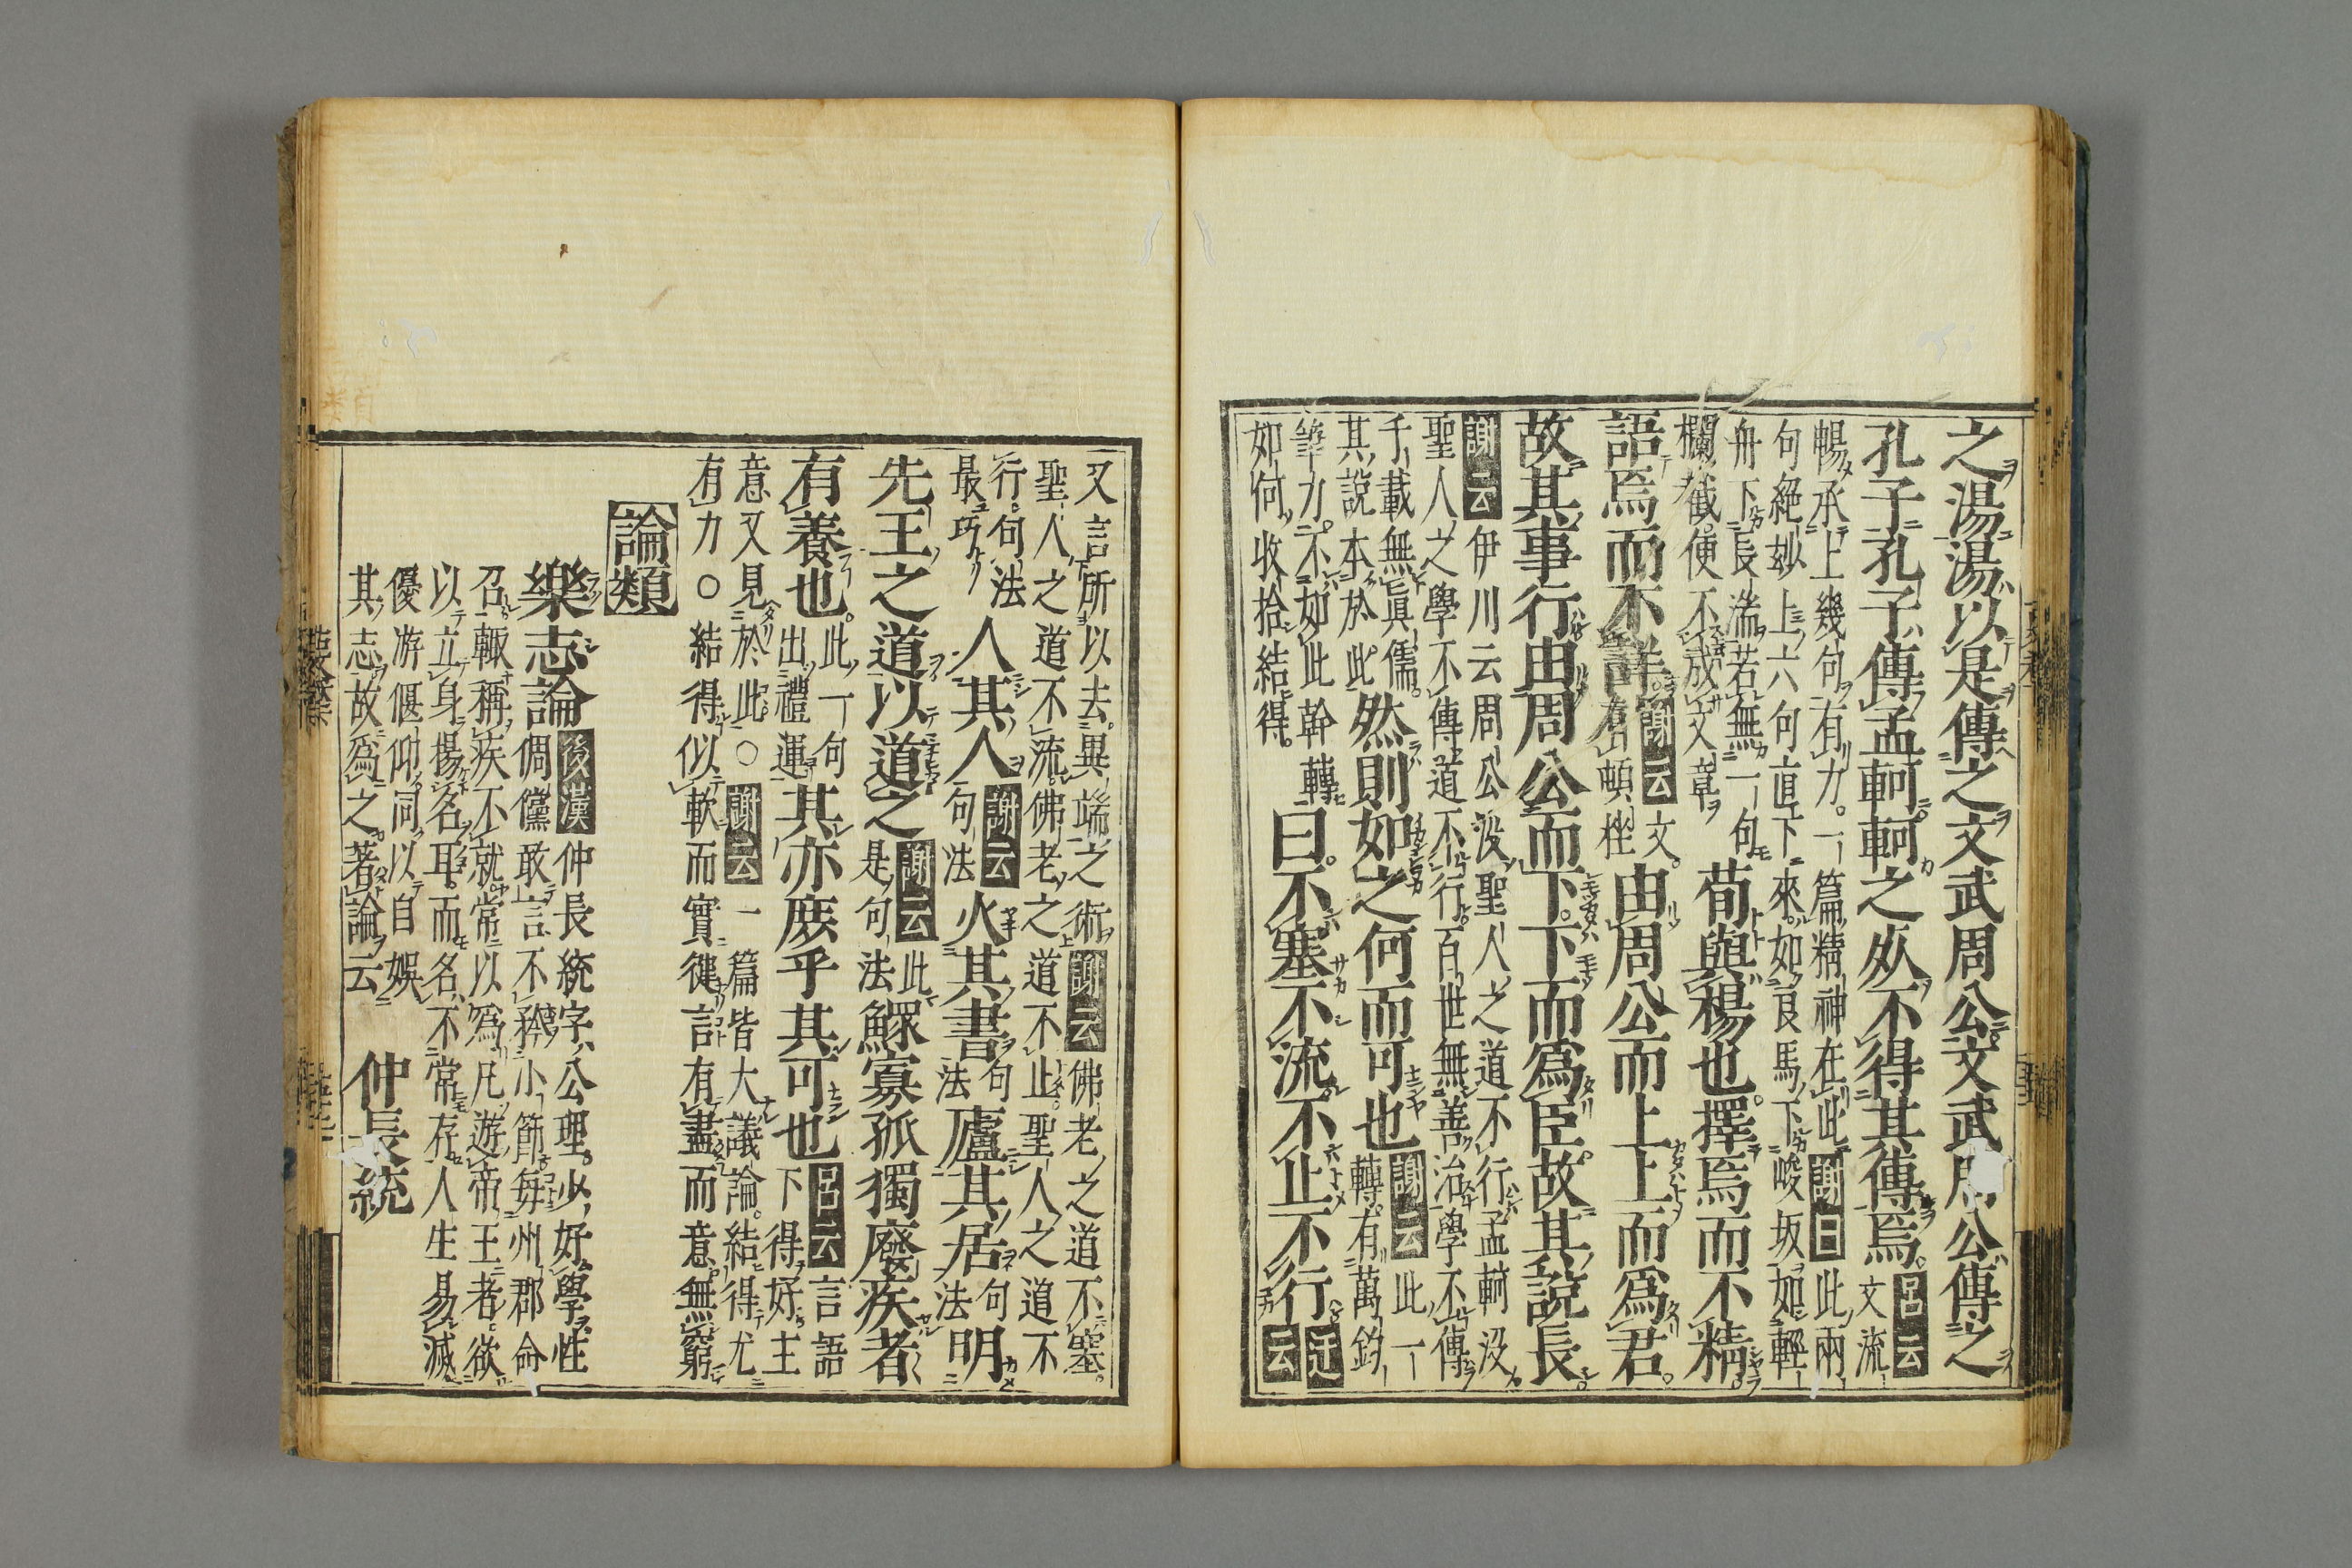 之湯湯以是傳之文武周公文武周公傳之
孔子孔子傳孟軻軻之死不得其傳焉呂云文流
暢承上幾句有力一篇精神在此謝曰此兩
句絶妙上六句直下來如良馬下峻坂如輕
舟下長湍若無一句
欄截便不成文章
荀與楊也擇焉而不精
語焉而不詳謝云文
有頓挫
由周公而上上而爲君
故其事行由周公而下下而爲臣故其說長
謝云伊川云周公没聖人之道不行孟軻没
聖人之學不傳道不行百世無善治學不傳
千載無眞儒
其說本於此
然則如之何而可也謝云此一
轉有萬鈞
筆力不如此斡轉
如何收拾結得
曰不塞不流不止不行迂
云
又言所以去異端之術謝云佛老之道不塞
聖人之道不流佛老之道不止聖人之道不
行句法
最巧
人其人謝云
句法
火其書句
法
廬其居句
法
明
先王之道以道之謝云此
是句法
鰥寡孤獨廢疾者
有養也此一句
出禮運
其亦庶乎其可也呂云言語
下得好主
意又見於此○謝云一篇皆大議論結得尤
有力○結得似軟而實健言有盡而意無窮
論類
樂志論後漢仲長統字公理少好學性
倜儻敢言不矜小節毎州郡命
召輙稱疾不就常以爲凡遊帝王者欲
以立身揚名耳而名不常存人生易滅
優游偃仰同以自娯
其志故爲之著論云
仲長統